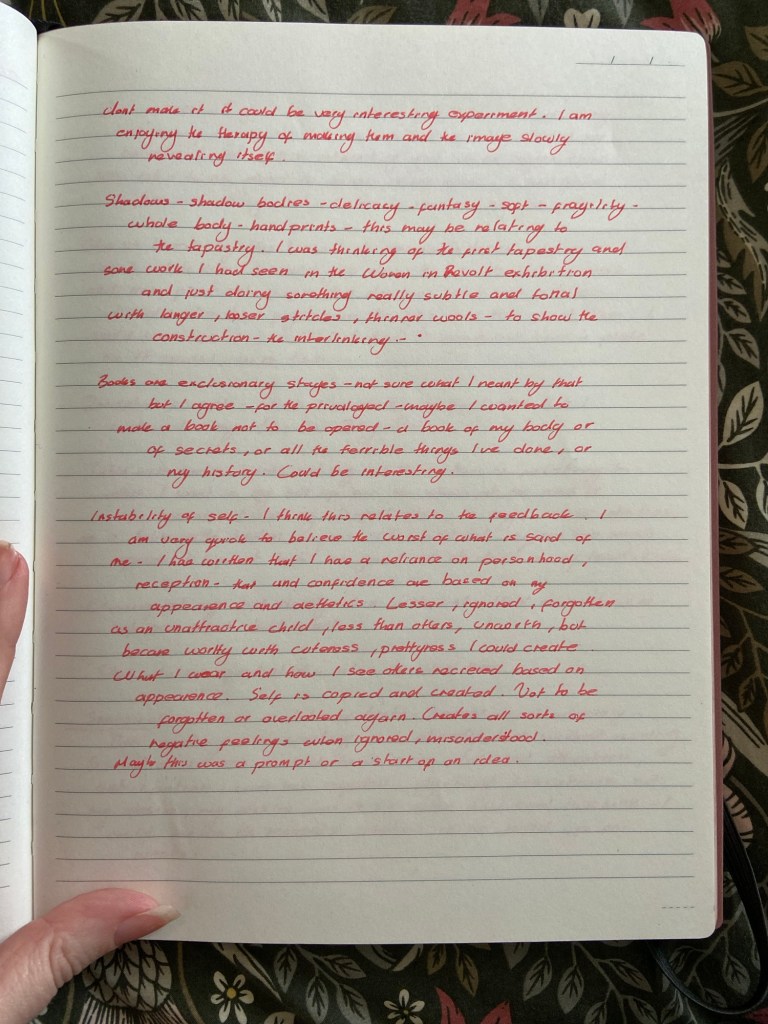 dont make it it could be very interesting experiment. I am
enjoying the therapy of making them and the image slowly
revealing itself.
Shadows - shadow bodies - delicacy - fantasy - soft - fragility -
whole body - handprints - this may be relating to
the tapastry. I was thinking of the first tapestry and
some work I had seen in the Women in Revolt exhibition
and just doing something really subtle and tonal
with larger, looser stitches, thinner wools - to show the
construction - the interlinking. -
Books are exclusionary stages - not sure what I meant by that
but I agree - for the privaleged - maybe I wanted to
make a book not to be opened - a book of my body or
of secrets, or all the terrible things I've done, or
my history. Could be interesting.
Instability of self - I think this relates to the feedback. I
am very quick to believe the worst of what is said of
me - I has written that I has a reliance on personhood,
reception - and confidence are based on my
appearance and asthetics. Lesser, ignored, forgotten
as an unattractive child, less than others, unworth, but
became worthy with cuteness, prettyness I could create.
What I wear and how I see others recieved based on
appearance. Self is copied and created. Not to be
forgotten or overlooked again. Creates all sorts of
negative feelings when ignored, misunderstood.
Maybe this was a prompt or a start of an idea.